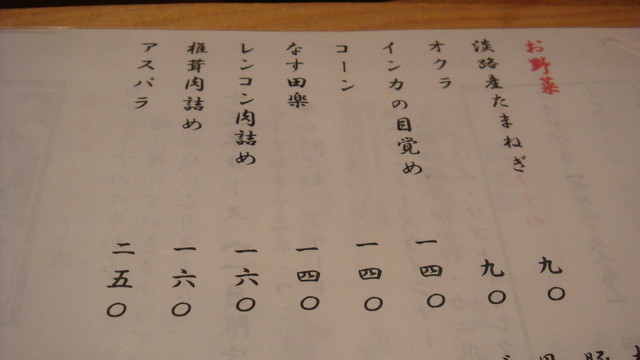 お野菜
淡路産たまねぎ 九〇
オクラ 九〇
インカの目覚め 一四〇
コーン 一四〇
なす田楽 一四〇
レンコン肉詰め 一六〇
椎茸肉詰め 一六〇
アスパラ 二五〇